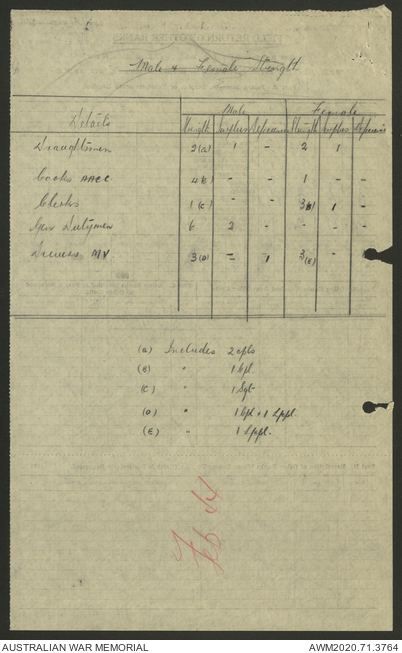 Male & Female Strength
Details Male Female
Strength Surplus Deficiencies Strength Surplus Deficiencies
Draughtsmen 2 (a) 1 - 2 1
Cooks AACC 4 (B) - - 1 - -
Clerks 1 (C) - - 3 (B) 1 -
Gen Dutymen 6 2 - - - -
Drivers MV 3 (D) - 1 3 (E) -
(a) Includes 2 cpls
(B) " 1 Cpl
(C) " 1 Sgt
(D) " 1 Cpl + 1 L/Cpl.
(E) " 1 L/Cpl.
AUSTRALIAN WAR MEMORIAL AWM2020.71.3764